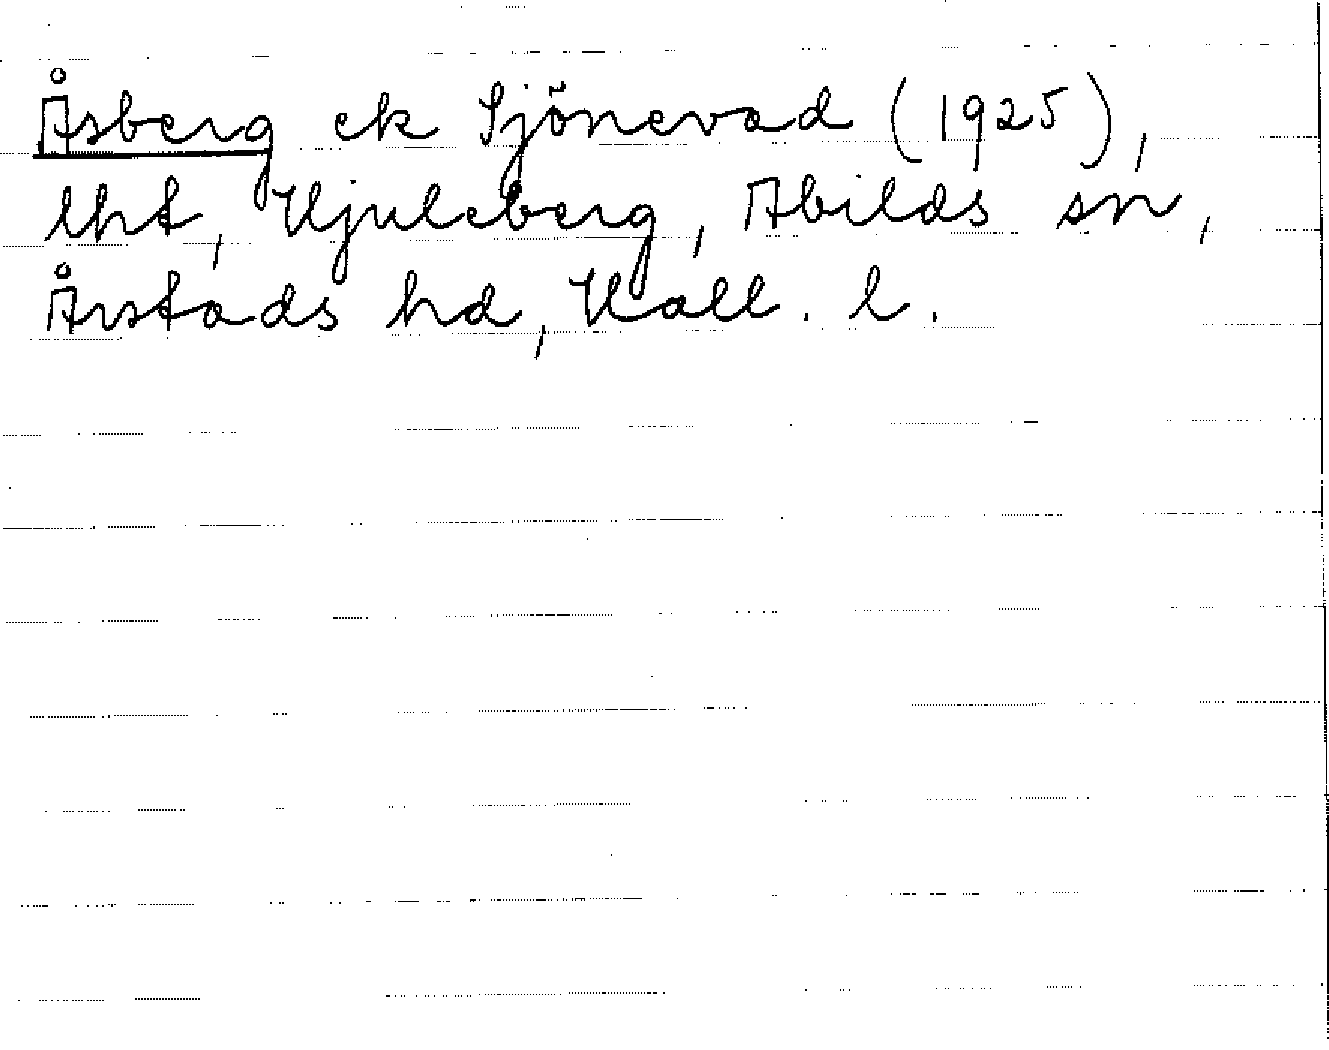 Åsberg ek Sjönevad (1925),
lht, Hjuleberg, Abilds sn,
Årstads hd, Hall. l.